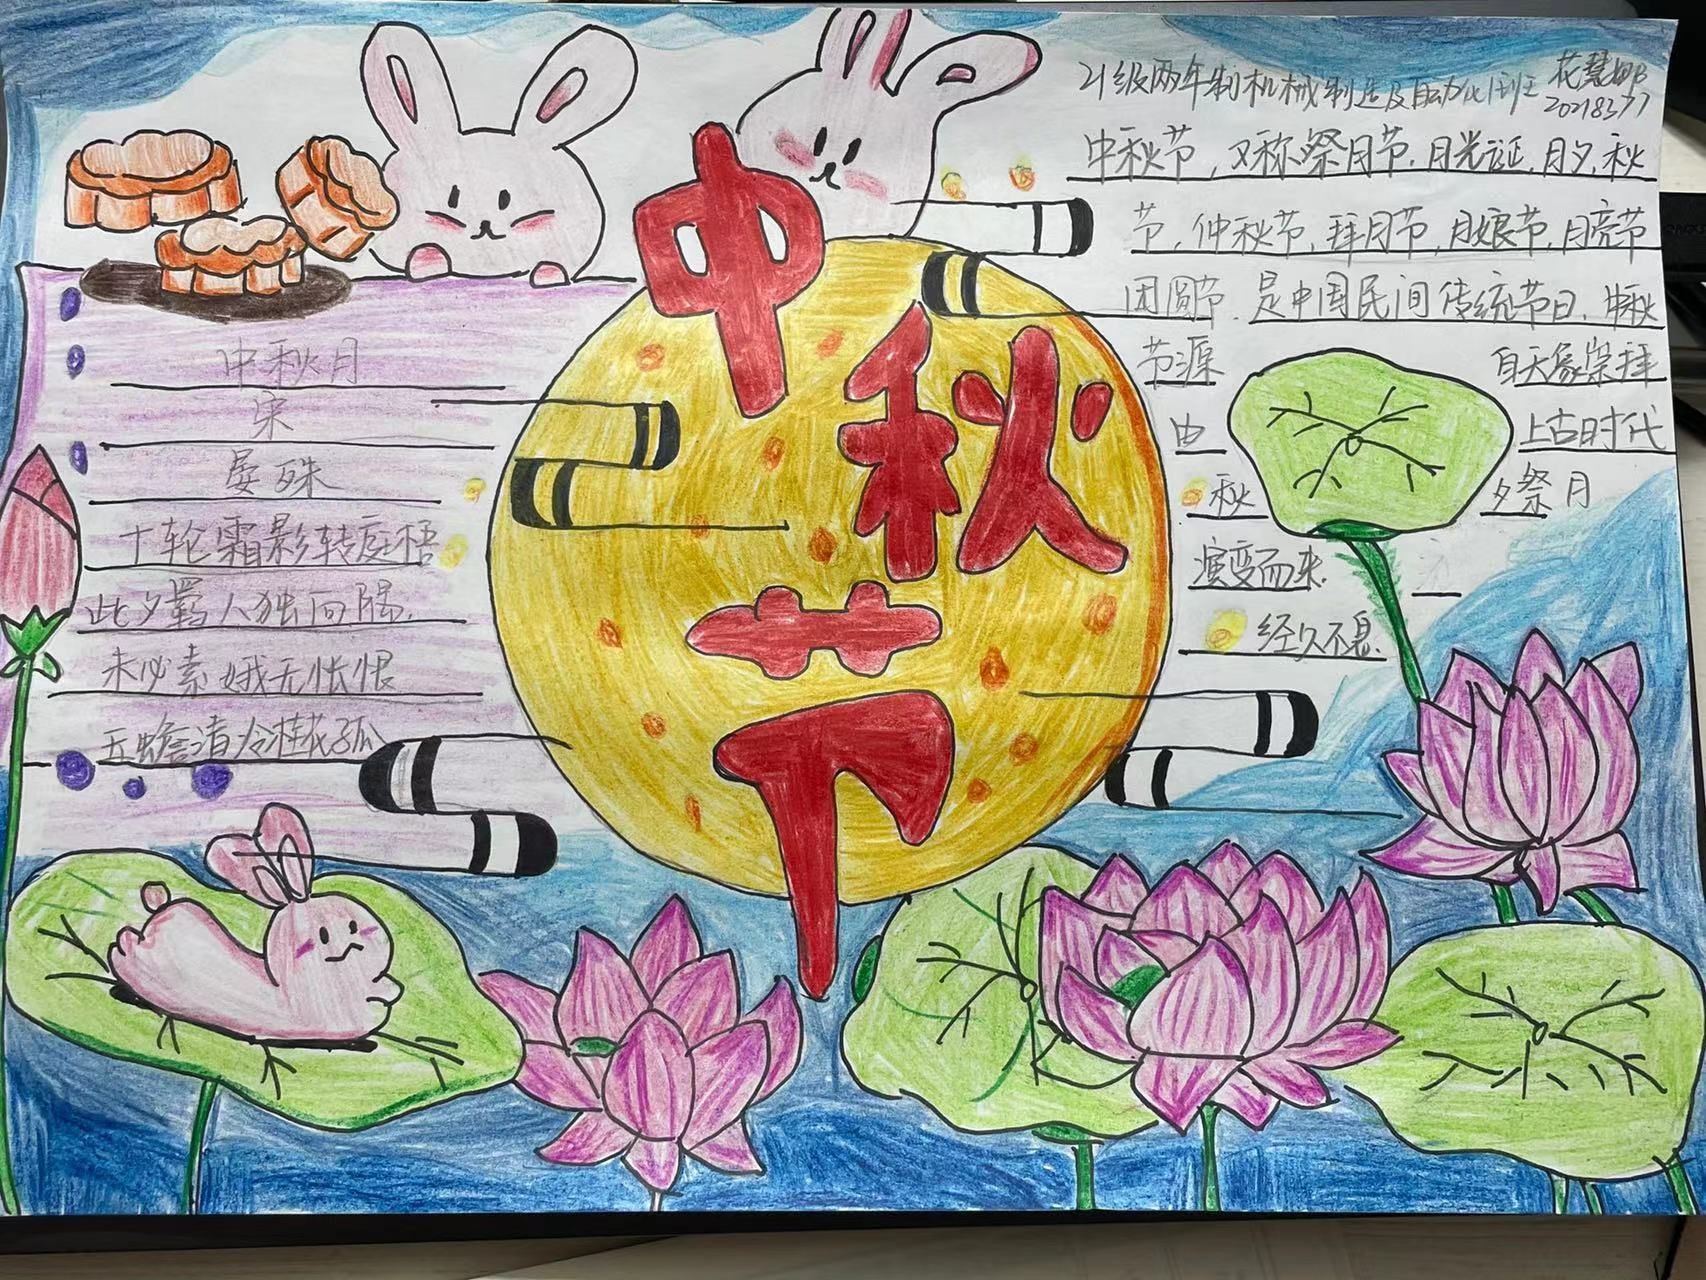 中秋节
21级两年制机械制造及自动化1班
20218377
中秋节，又称祭月节.月光诞.月夕.秋
节.仲秋节.拜月节.月娘节.月亮节
团圆节.是中国民间传统节日.中秋
节源 自天象崇拜
由 上古时代
秋 夕祭月
演变而来.
经久不息.
中秋月
宋
晏殊
十轮霜影转庭梧
此夕羁人独向隅.
未必素娥无怅恨
玉蟾清冷桂花孤